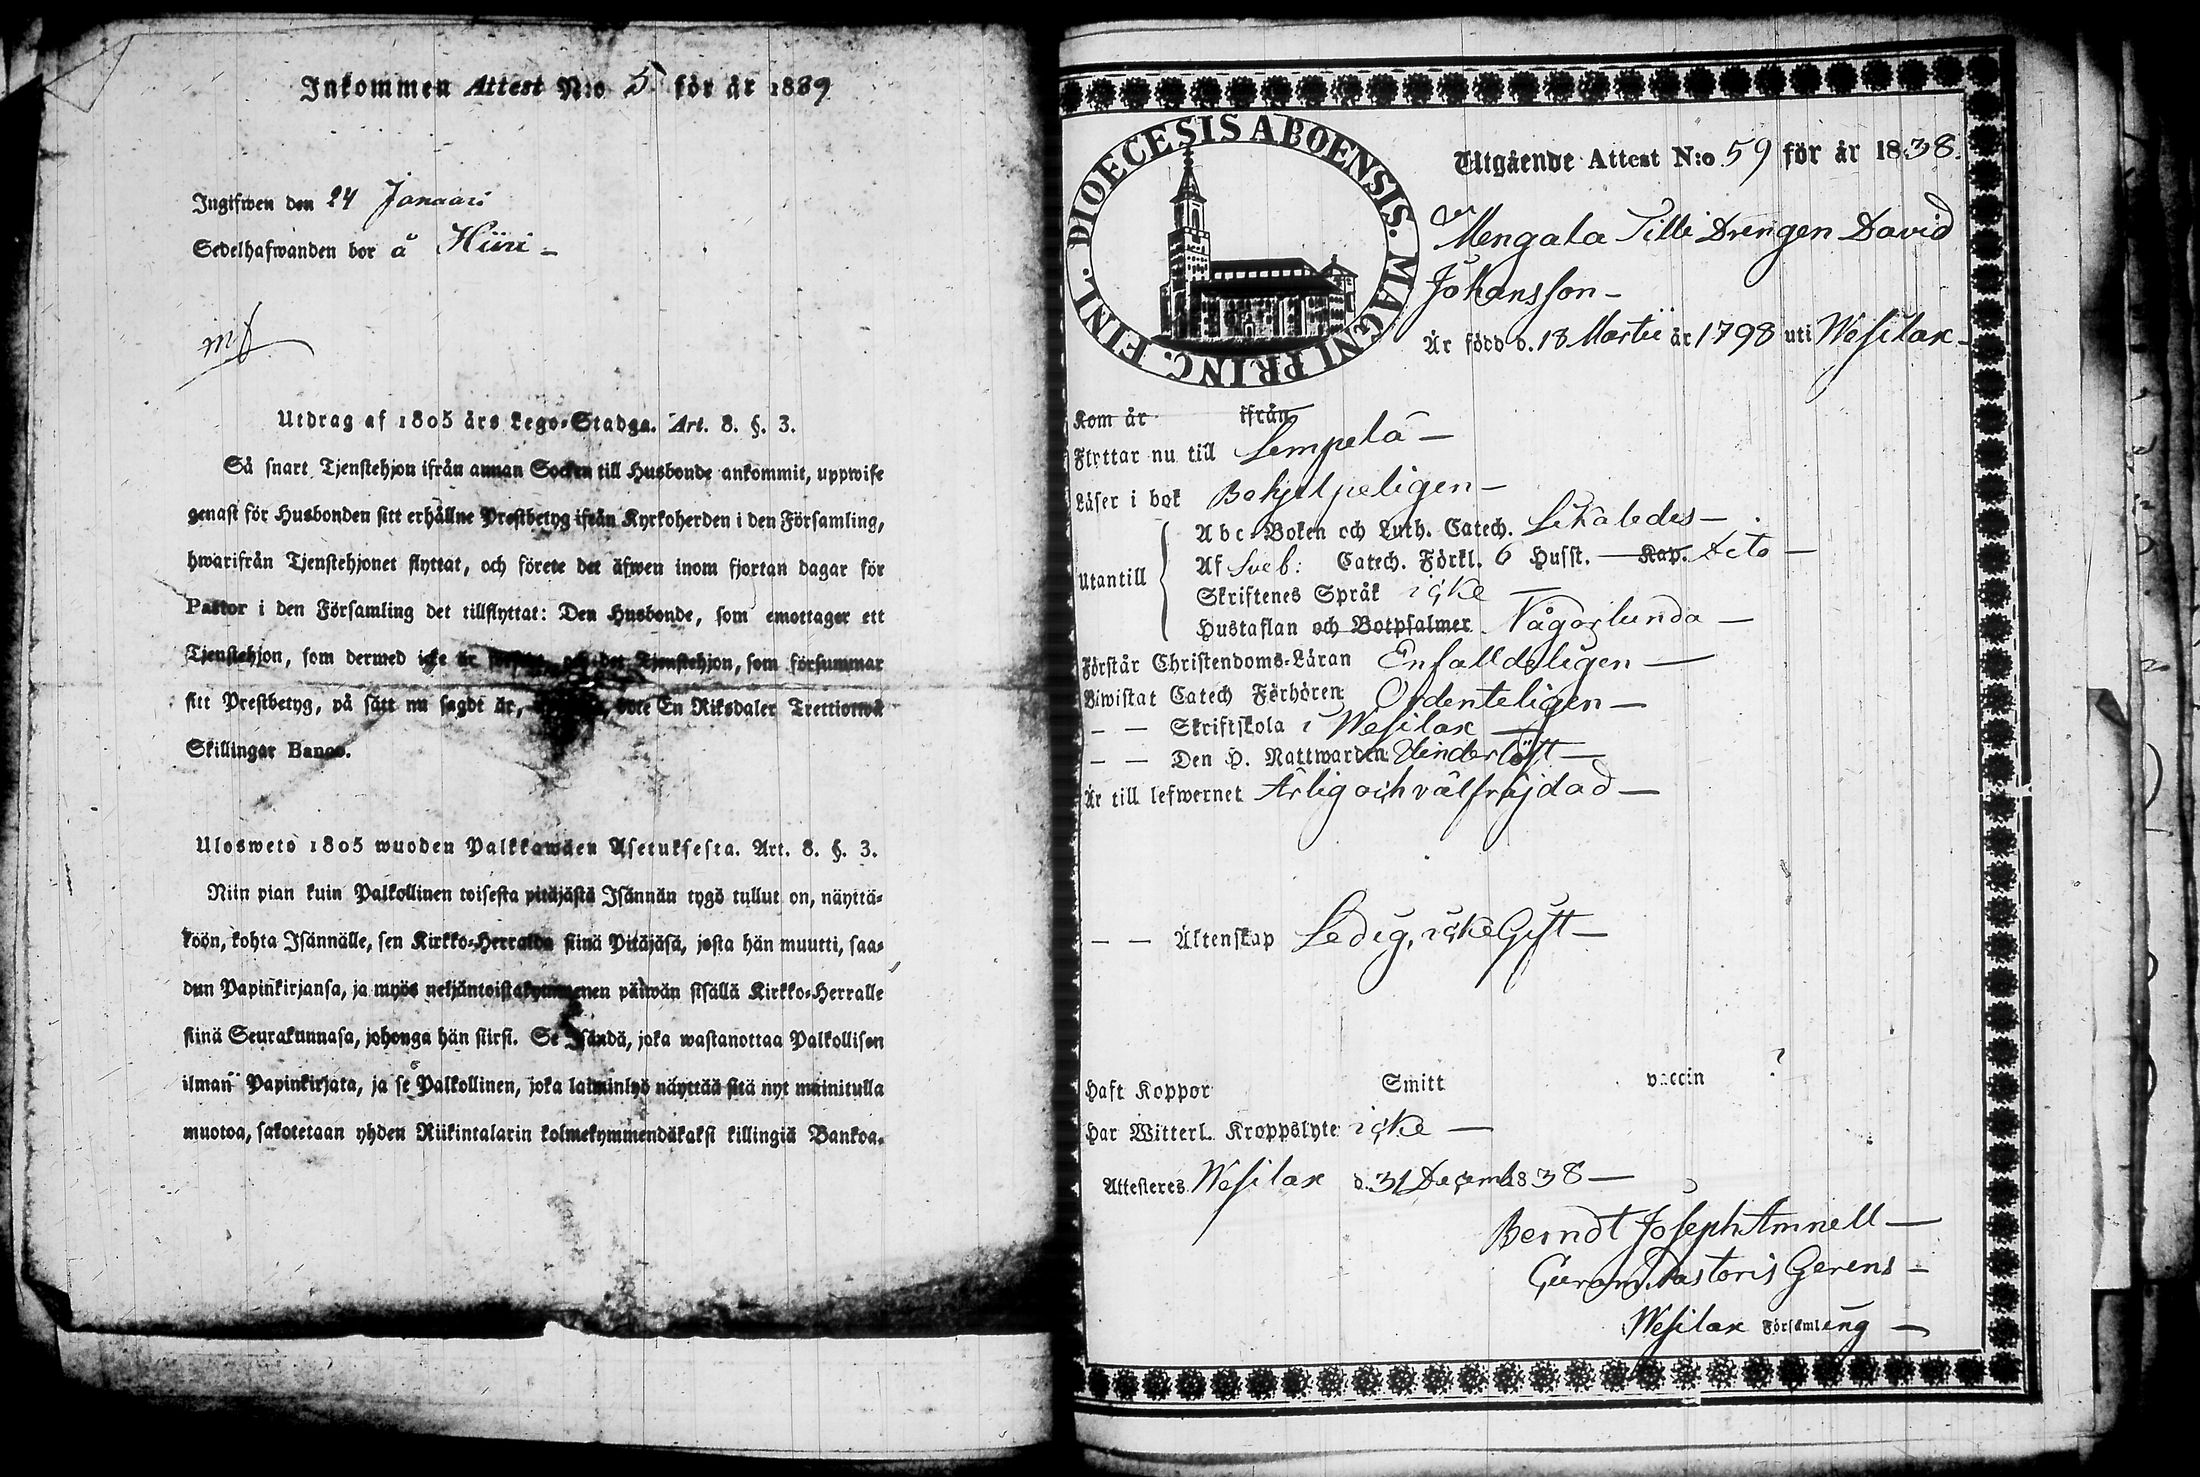 Inkommen Attest N:o 5 för år 1839
Ingifwen den 24 Januari
Sedelhafwanden bor å Hiiri -
Utdrag af 1805 års Lego-Stadga. Art. 8. §. 3.
Så snart Tjenstehjon ifrån annan Socken till Husbonde ankommit, uppwise
genast för Husbonden sitt erhållne Prestbetyg ifrån Kyrkoherden i den Församling,
hwarifrån Tjenstehjonet flyttat, och förete det äfwen inom fjortan dagar för
Pastor i den Församling det tillflyttat: Den Husbonde, som emottager ett
Tjenstehjon, som dermed icke är och det Tjenstehjon, som försummar
sitt Prestbetyg, på sätt nu sagdt är, bote En Riksdaler Trettiotwå
Skillingar Banco.
Ulosweto 1805 wuoden Palkkawäen Asetuksesta. Art. 8. §. 3.
Niin pian kuin Palkollinen toisesta pitäjästä Isännän tygö tullut on, näyttä-
köön, kohta Isännälle, sen Kirkko-Herralda siinä Pitäjäsä, josta hän muutti, saa-
dun Papinkirjansa, ja myös neljäntoistakymmenen päiwän sisällä Kirkko-Herralle
siinä Seurakunnasa, johonga hän siirsi. Se Isändä, joka wastanottaa Palkollisen
ilman Papinkirjata, ja se Palkollinen, joka laiminlyö näyttää sitä nyt mainitulla
muotoa, sakotetaan yhden Riikintalarin kolmekymmendäkaksi killingiä Bankoa.
DIOECESIS ABOENSIS. MAGNI PRINC. FINL.
Utgående Attest N:o 59 för år 1838.
Mengala Tilli Drengen David
Johansson -
Är född d. 18 Martii år 1798 uti Wesilax -
Kom år ifrån
Flyttar nu till Lempelä -
Läser i bok Behjelpeligen -
Utantill
Abc-Boken och Luth. Catech. Likaledes -
Af Sveb: Catech. Förkl. 6 Husst. Kap. Dito -
Skriftenes Språk icke -
Hustaflan och Botpsalmer Någorlunda -
Förstår Christendoms-Läran Enfalldeligen -
Biwistat Catech Förhören Ordenteligen -
- - Skriftskola i Wesilax -
- - Den H. Nattwarden Oförhindrad -
Är till lefwernet Ärlig och välfräjdad -
- - Äktenskap Ledig, icke Gift -
Haft Koppor Smitt vaccin ?
Har Witterl. Kroppslyte icke -
Attesteres Wesilax d. 31 Decemb 1838 -
Berndt Joseph Amnell -
Curam Pastoris Gerens -
i Wesilax Församling -